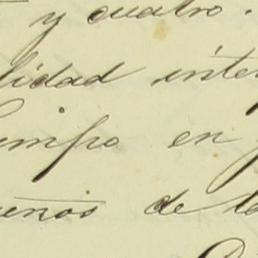 y cuatro.
lidad inte
empo en
enos de la